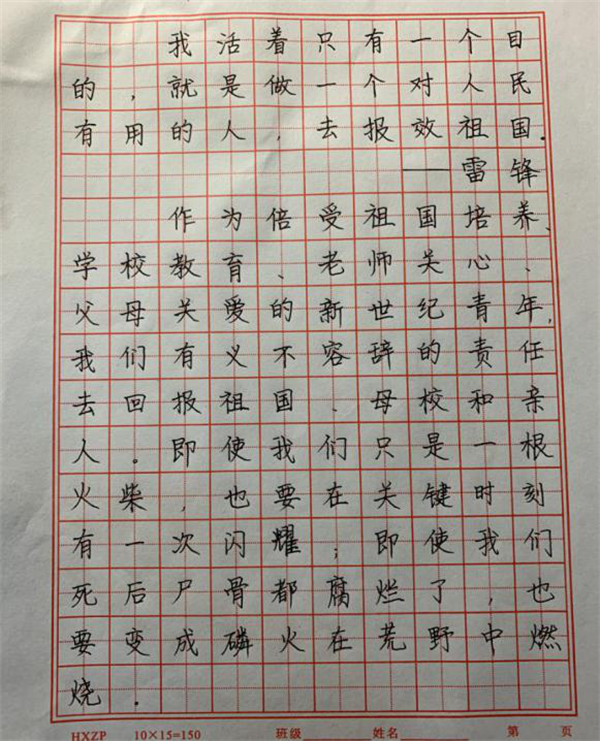 我活着只有一个目
的，就是做一个对人民
有用的人，去报效祖国.
——雷锋
作为倍受祖国培养、
学校教育、老师关心、
父母关爱的新世纪青年,
我们有义不容辞的责任
去回报祖国、母校和亲
人。即使我们只是一根
火柴，也要在关键时刻
有一次闪耀；即使我们
死后尸骨都腐烂了，也
要变成磷火在荒野中燃
烧.
HXZP 10×15=150 班级 姓名 第 页